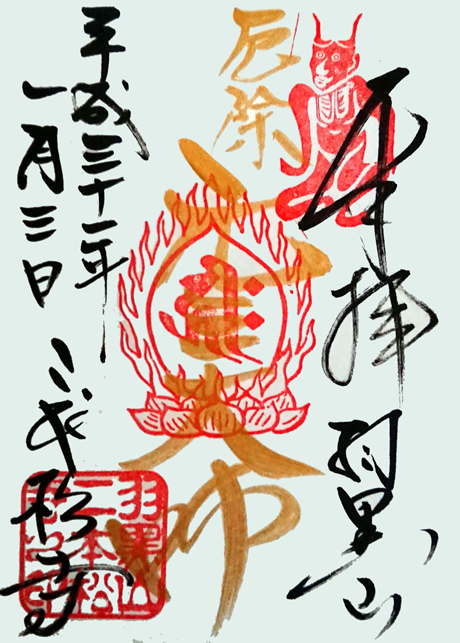 奉拝 羽黒山
厄除
元三大師
平成三十一年
一月三日
二本松寺
羽黒山
二本松